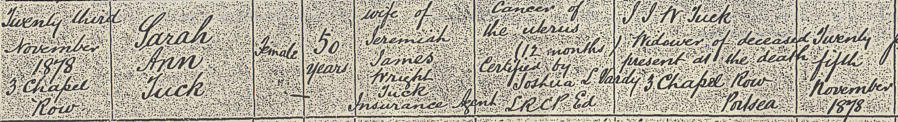 Twenty third
November
1878
3 Chapel
Row
Sarah
Ann
Tuck
Female
50
years
wife of
Jeremiah
James
Wright
Tuck
Insurance Agent
Cancer of
the uterus
(12 months)
Certified by
Joshua L Vardy
LRCP Ed
J J W Tuck
Widower of deceased
present at the death
3 Chapel Row
Portsea
Twenty
fifth
November
1878